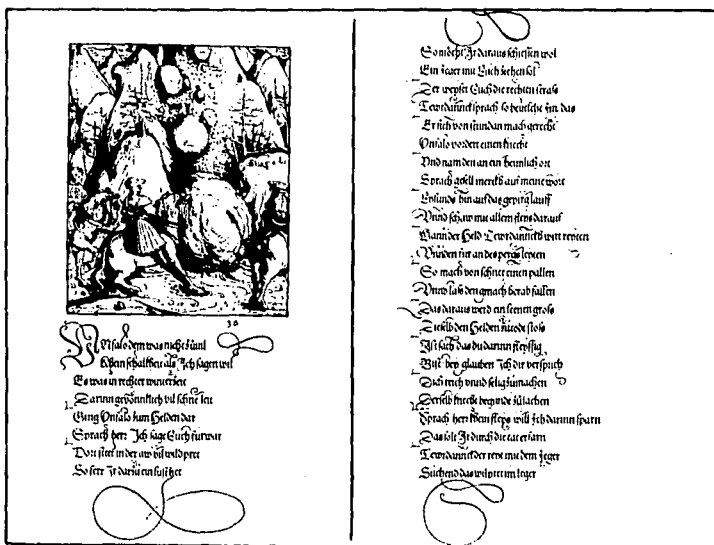 36
Unfalo dem was nicht zuuil
Khein schalkheit als Ich sagen wil
Es was in rechter winterzeit
Darinn gewonntlich vil schnee leit
Gieng Unfalo zum Helden dar
Sprach herr Ich sage Euch furwar
Dort steet in der aw vil wildpret
So fert Ir darzu ein lust het
So mocht Ir daraus schiessen wol
Ein Jeger mit Euch ziehen sol
Der weyset Euch die rechten stras
Tewrdannck sprach so beuelche Im das
Er sich von stundan mach gerecht
Unfalo vordert einen knecht
Vnd nam den an ein heimlich ort
Sprach gesell merckh auf meine wort
hin auf das gepirg lauff
Vnnd schaw mit allem fleys darauf
Wann der Held Tewrdannckh wirt reyten
Vnnden fur an des pergs leyten
So mach von schnee einen pallen
Vnnd lass den gmach herab fallen
Das daraus werd ein leenen gross
Dieselb den Helden zu tode stoss
Ist sach das du darinn fleyssig
Bist bey glauben Ich dir versprich
Dich reich vnnd selig zumachen
Derselb knecht begunde zulachen
Sprach herr khein fleys will Ich darinn sparn
Das solt Ir durch die tat erfarn
Tewrdannckh der reyt mit dem Jeger
Suchend das wilpret im leger